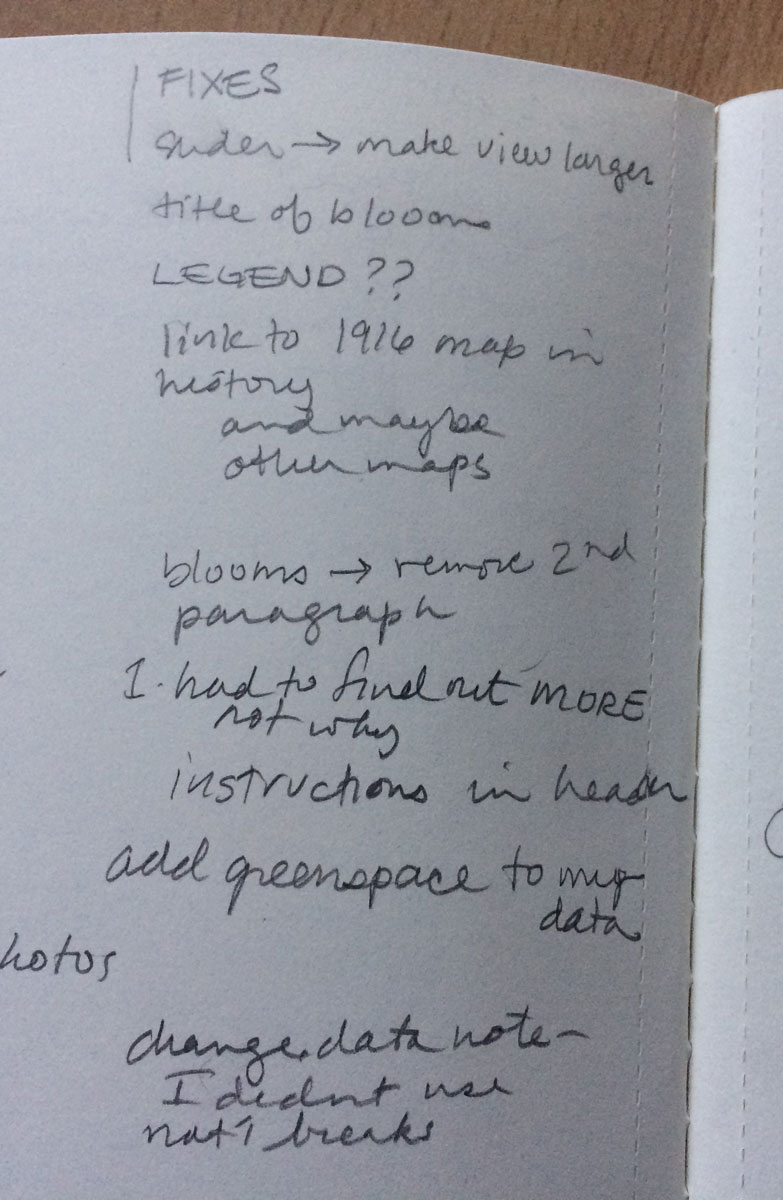 FIXES
slider → make view larger
title of blooom
LEGEND??
link to 1916 map in
history
and maybe
other maps
blooms → remove 2nd
paragraph
I had to find out MORE
not why
instructions in header
add greenspace to my
data
hotos
change data note -
I didnt use
nat'l breaks